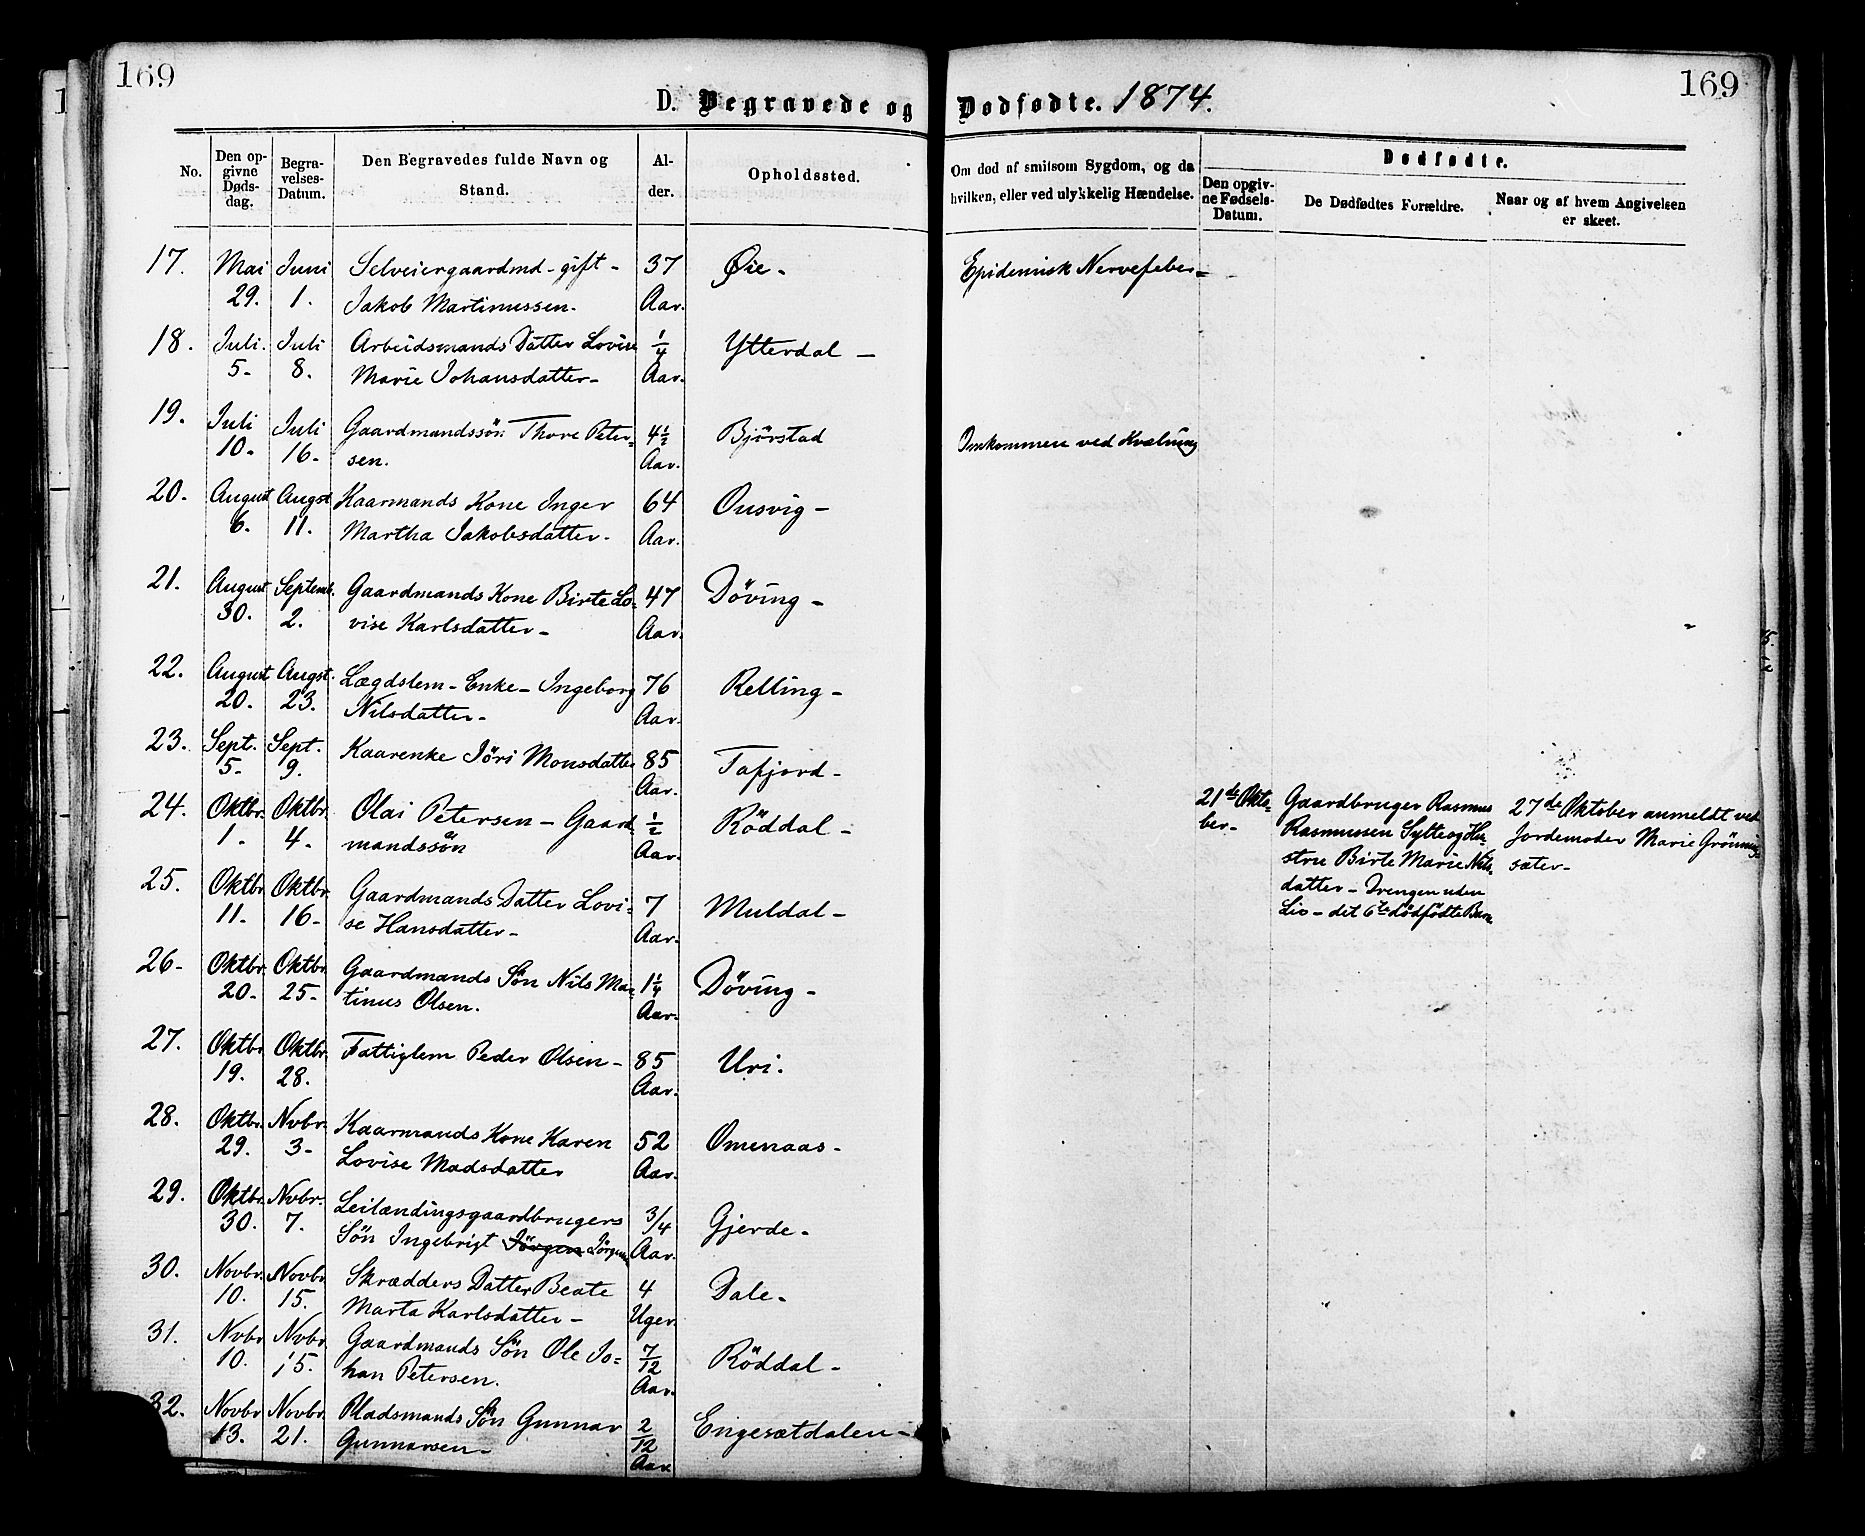 169
169
D. Begravede og Dødfødte. 1874.
No.
Den opgivne Dødsdag.
Begravelses-Datum.
Den Begravedes fulde Navn og Stand.
Alder.
Opholdssted.
Om død af smitsom Sygdom, og da hvilken, eller ved ulykkelig Hændelse.
Dødfødte.
Den opgivne Fødsels-Datum.
De Dødfødtes Forældre.
Naar og af hvem Angivelsen er skeet.
17. Mai Juni Selveiergaardmd - gift - 37 Øie - Epidemisk Nervefeber =
29. 1. Jakob Martinussen. Aar.
18. Juli. Juli Arbeidsmands Datter Lovise 1/4 Ytterdal -
5- 8. Marie Johansdatter - Aar.
19. Juli Juli Gaardmandssön Thore Peter= 4 1/2 Bjórstad Omkommen ved Kvælning
10- 16- sen. Aar.
20. August Augst Kaarmands Kone Inger 64 Ousvig -
6. 11. Martha Jakobsdatter. Aar.
21. August Septemb. Gaardmands Kone Birte Lo- 47 Döving -
30. 2. vise Karlsdatter - Aar.
22. August Augst. Lægdslem - Enke - Ingeborg 76 Relling -
20. 23. Nilsdatter - Aar.
23. Sept. Sept. Kaarenke Jöri Monsdatter 85 Tafjord -
5- 9. Aar.
24. Oktbr. Oktbr. Olai Petersen - Gaard 1/2 Röddal -
1- 4. mandssön Aar.
21de Okto-
ber -
Gaardbruger Rasmus
Rasmussen Sylte og Hu-
stru Birte Marie Nils
datter - Drengen uden
Liv - det 6te dödfödte Barn
27de Oktober anmeldt ved
Jordemoder Marie Grönning
sæter -
25. Oktbr Oktbr. Gaardmands Datter Lovi= 7 Muldal -
11. 16- se Hansdatter - Aar.
26- Oktbr. Oktbr. Gaardmands Sön Nils Mar 1 1/4 Döving -
20- 25- tinus Olsen. Aar.
27. Oktbr Oktbr. Fattiglem Peder Olsen - 85 Uri.
19. 28. Aar.
28. Oktbr. Nvbr. Kaarmands Kone Karen 52 Omenaas -
29. 3- Lovise Madsdatter Aar.
29. Oktbr. Nvbr. Leilændingsgaardbrugers 3/4 Gjerde -
30. 7. Sön Ingebrigt Jörgen Jörgens Aar.
30. Novbr. Novbr. Skrædders Datter Beate 4 Dale -
10. 15. Marta Karlsdatter - Uger.
31. Nvbr Nvbr. Gaardmands Sön Ole Jo= 7/12 Röddal -
10. 15. han Petersen. Aar.
32. Novbr Novbr. Pladsmands Sön Gunnar 2/12 Engesætdalen -
13. 21. Gunnarsen - Aar